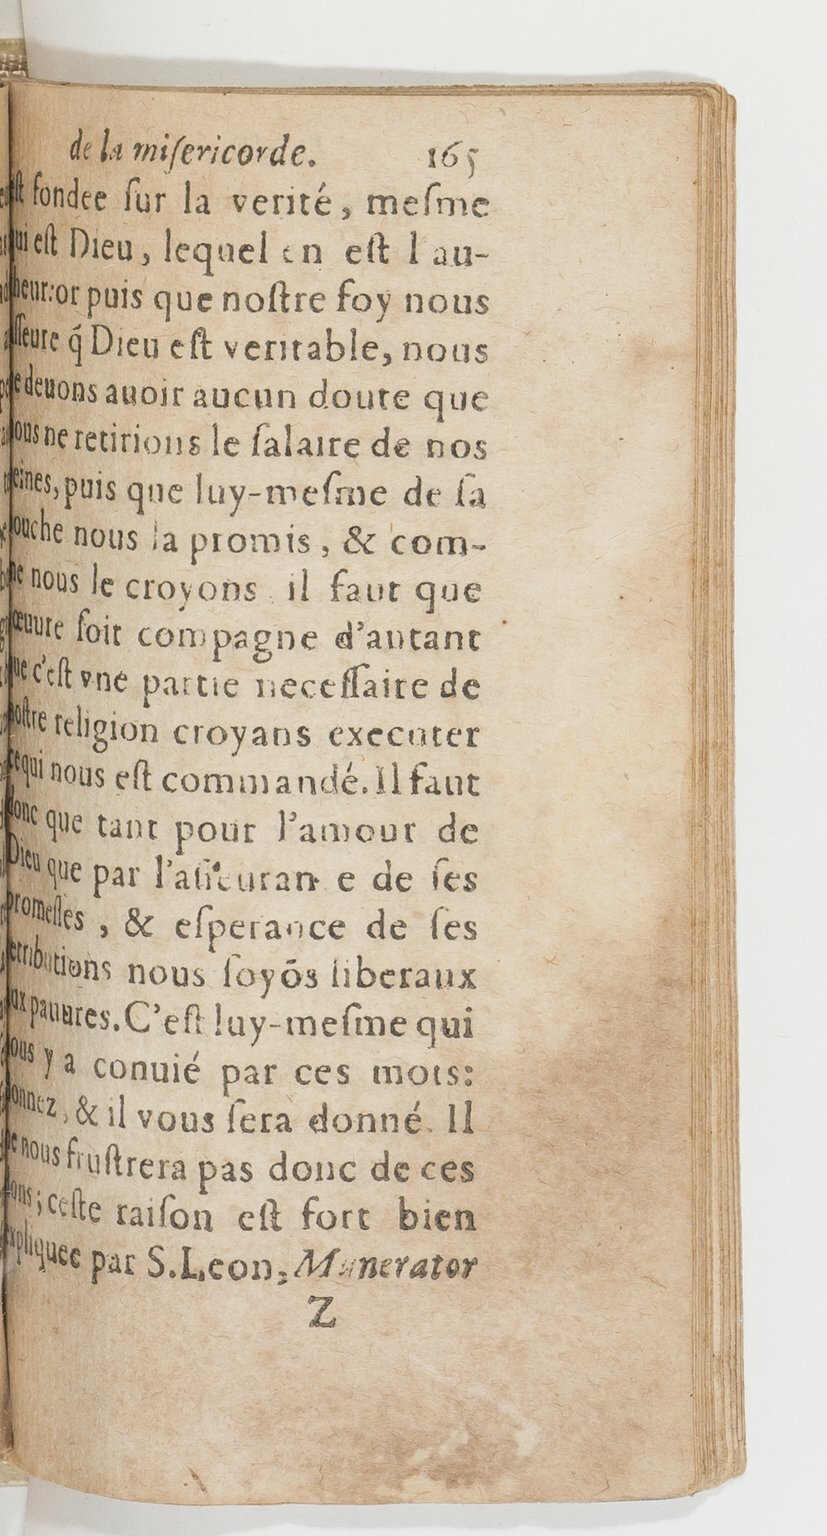 de la miſericorde. 165
ſt fondee ſur la verité, meſme
ui eſt Dieu, lequel en eſt l'au-
heur: or puis que noſtre foy nous
ſſeure q̃ Dieu eſt veritable, nous
e deuons auoir aucun doute que
ous ne retirions le ſalaire de nos
eines, puis que luy-meſme de ſa
ouche nous la promis, & com-
e nous le croyons il faut que
œuure ſoit compagne d'autant
ue c'eſt vne partie neceſſaire de
oſtre religion croyans executer
e qui nous eſt commandé. Il faut
onc que tant pour l'amour de
Dieu que par l'aſſeurance de ſes
romeſſes, & eſperance de ſes
etributions nous ſoyõs liberaux
ux pauures. C'eſt luy-meſme qui
ous y a conuié par ces mots:
onnez, & il vous ſera donné. Il
e nous fruſtrera pas donc de ces
ons; ceſte raiſon eſt fort bien
xpliquee par S. Leon, Munerator
Z